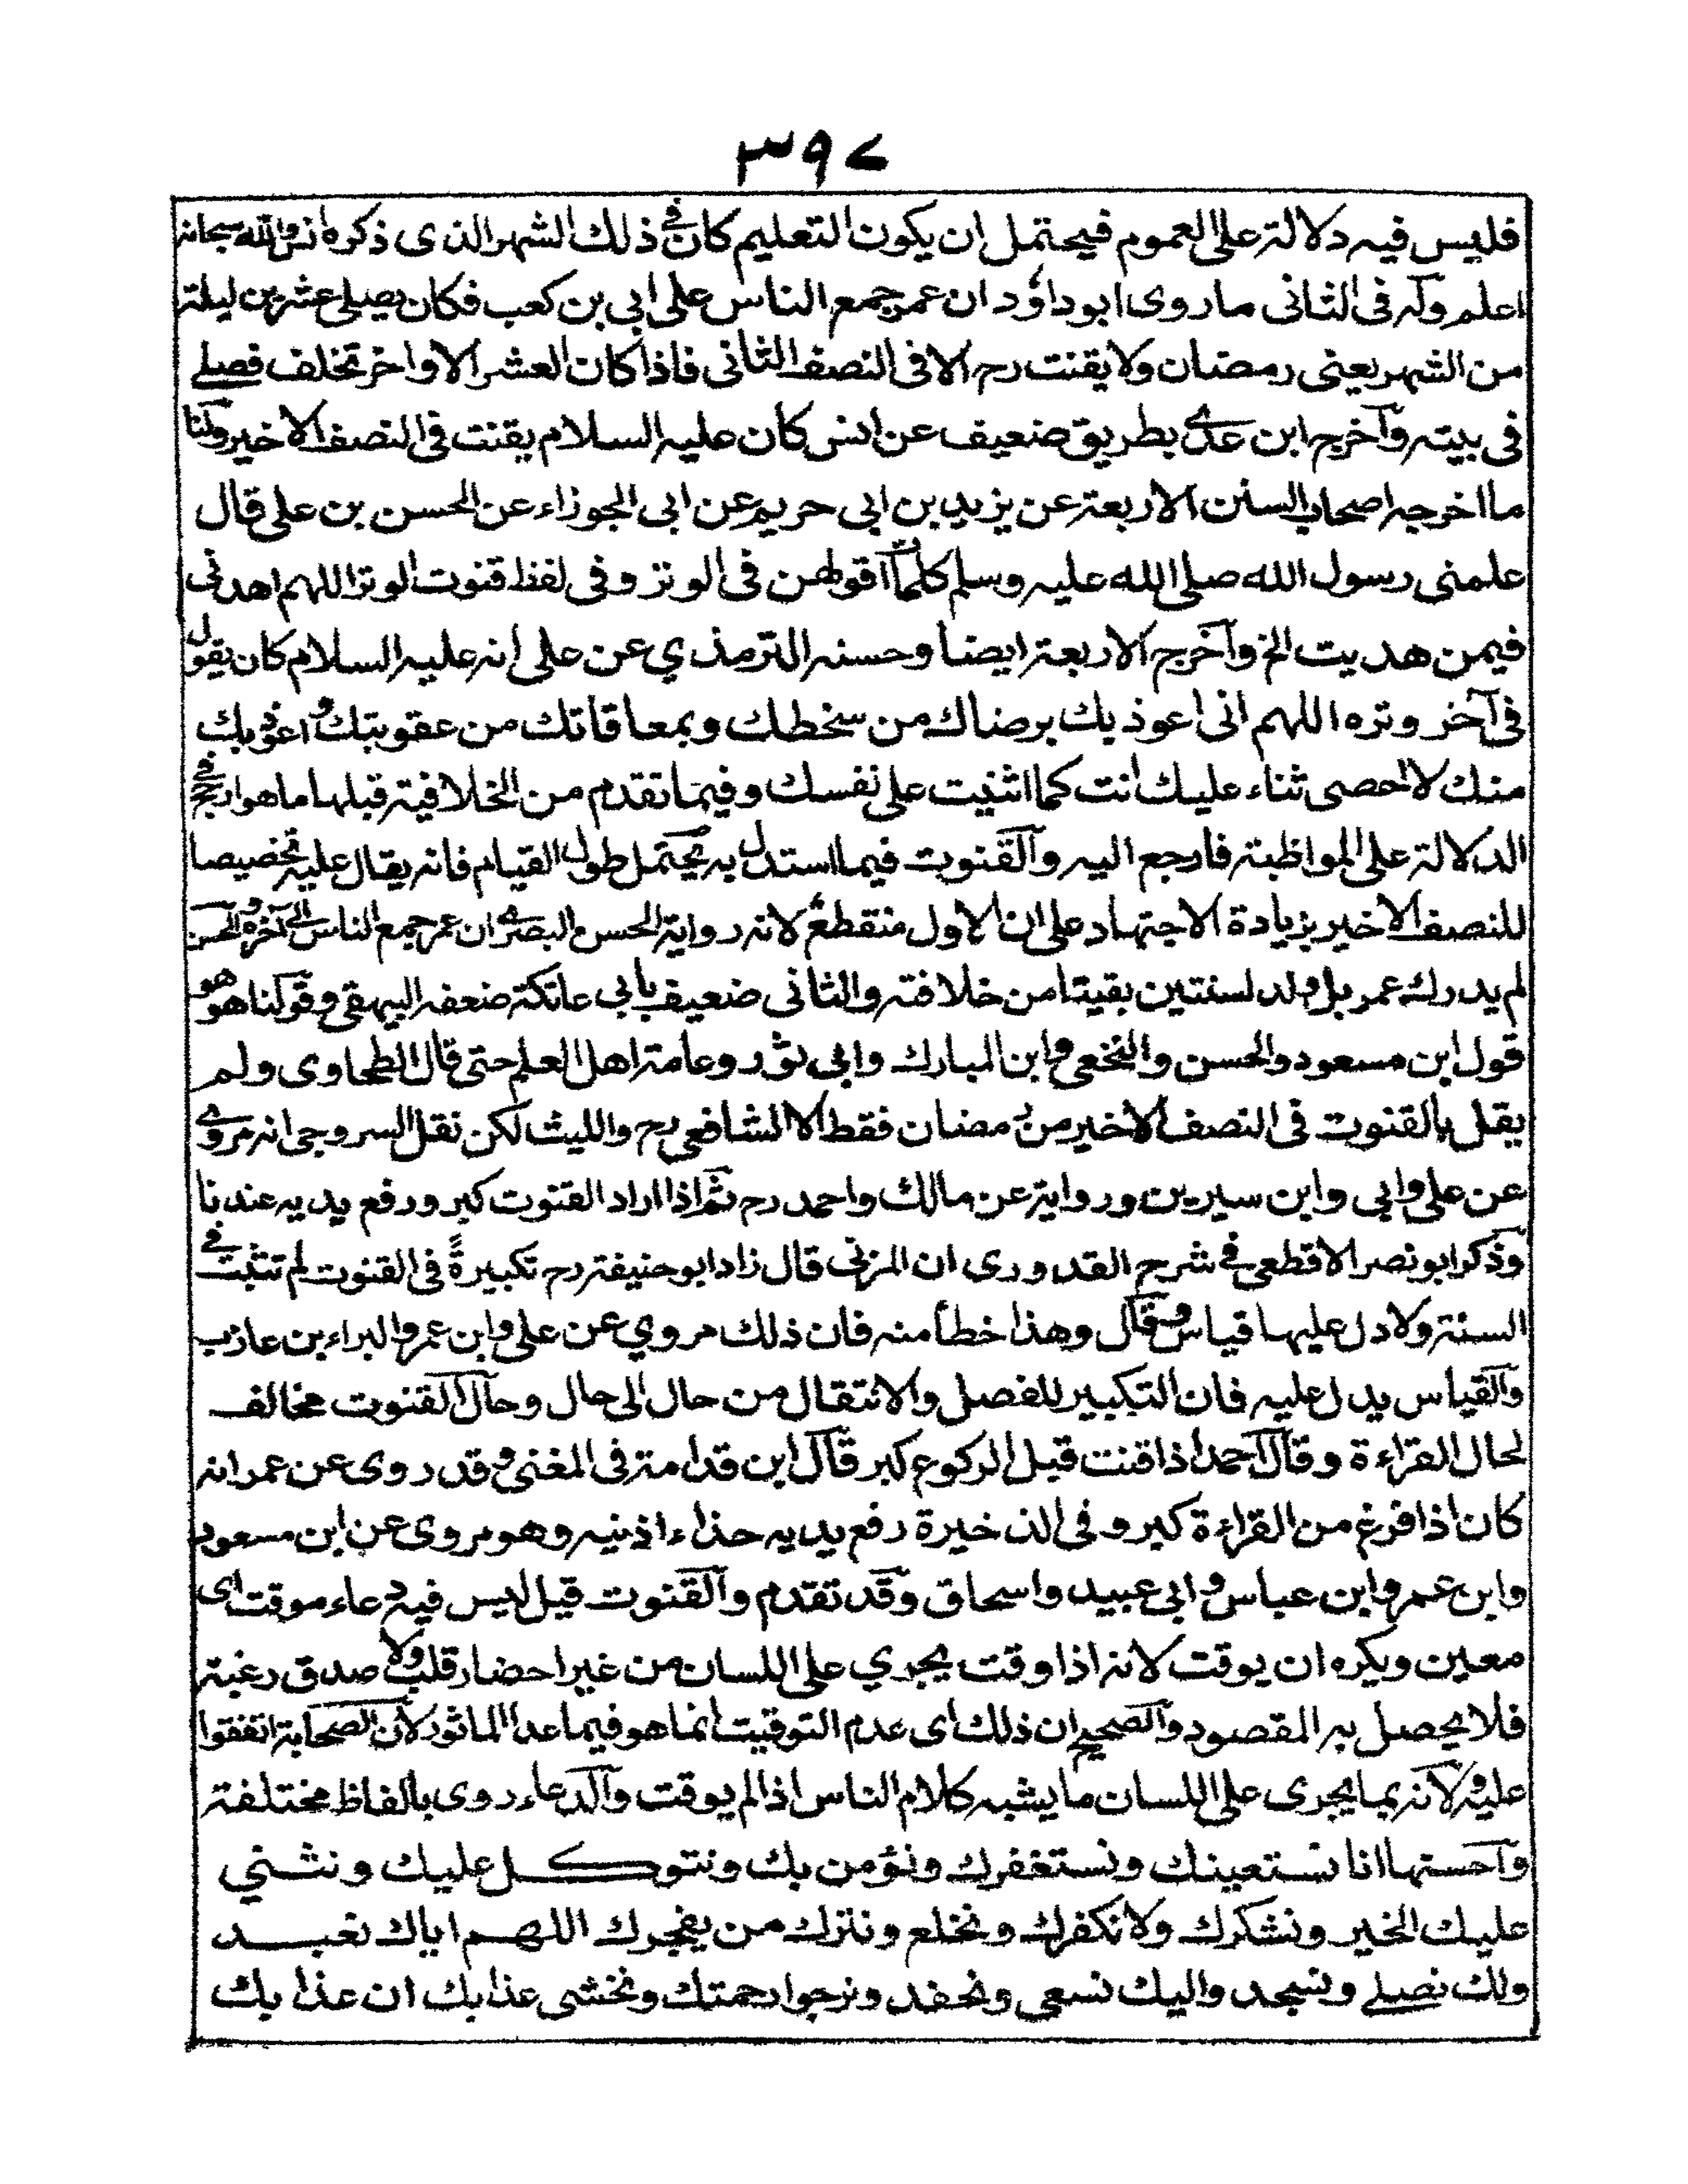 ٣٩٧
فليس فيه دلالة على العموم فيحتمل ان يكون التعليم كان في ذلك الشهر الذى ذكره انس والله سبحانه
اعلم وله فى الثانى ماروى ابوداؤد ان عمر جمع الناس على ابي بن كعب فكان يصلى عشرين ليلة
من الشهر يعنى رمضان ولا يقنت رح الا فى النصف الثانى فاذا كان العشر الاواخر تخلف فصلے
فى بيته وآخرج ابن عدى بطريق ضعيف عن انس كان عليه السلام يقنت فى النصف الاخير ولنا
ما اخرجه اصحاب السنن الاربعة عن يزيد بن ابى حريم عن ابى الجوزاء عن الحسن بن على قال
علمنى رسول الله صلى الله عليه وسلم كلمات اقولهن فى الوتر وفى لفظ قنوت الوتر اللهم اهدنى
فيمن هديت الخ وآخرج الاربعة ايضا وحسنه الترمذي عن على انه عليه السلام كان يقول
فى آخر وتره اللهم انى اعوذ بك برضاك من سخطك وبمعافاتك من عقوبتك و اعوذ بك
منك لا احصى ثناء عليك انت كما اثنيت على نفسك وفيما تقدم من الخلافية قبلها ما هو ارجح في
الدلالة على المواظبة فارجع اليه وآلقنوت فيما استدل به يحتمل طول القيام فانه يقال عليه تخصيصا
للنصف الاخير بزيادة الاجتهاد على ان الاول منقطع لانه رواية الحسن البصرى ان عمر جمع الناس الى آخره والحسن
لم يدرك عمر بل ولد لسنتين بقيتا من خلافته والثانى ضعيف بابي عاتكة ضعفه البيهقى وقولنا هو
قول ابن مسعود والحسن والنخعى وابن المبارك وابى ثور وعامة اهل العلم حتى قال الطحاوى ولم
يقل بالقنوت فى النصف الاخير من رمضان فقط الا الشافعى رح والليث لكن نقل السروجى انه مروى
عن على وابي وابن سيرين ورواية عن مالك واحمد رح ثم اذا اراد القنوت كبر ورفع يديه عندنا
وذكر ابو نصر الاقطعى في شرح القدورى ان المزنى قال زاد ابوحنيفة رح تكبيرةً فى القنوت لم تثبت في
السنة ولا دل عليها قياس وقال وهذا خطأ منه فان ذلك مروي عن على وابن عمر والبراء بن عازب
والقياس يدل عليه فان التكبير للفصل والانتقال من حال الى حال وحال القنوت مخالف
لحال القراءة وقال احمد اذا قنت قبل الركوع كبر قال ابن قدامة فى المغنى وقد روى عن عمر انه
كان اذا فرغ من القراءة كبر وفى الذخيرة رفع يديه حذاء اذنيه وهو مروى عن ابن مسعود
وابن عمر وابن عباس وابى عبيد واسحاق وقد تقدم وآلقنوت قيل ليس فيه دعاء موقت اى
معين ويكره ان يوقت لانه اذا وقت يجري على اللسان من غير احضار قلب ولا صدق رغبة
فلا يحصل به المقصود والصحيح ان ذلك اى عدم التوقيت انما هو فيما عدا الماثور لان الصحابة اتفقوا
عليه ولانه ربما يجرى على اللسان ما يشبه كلام الناس اذا لم يوقت وآلدعاء روى بالفاظ مختلفة
وآحسنها انا نستعينك ونستغفرك ونؤمن بك ونتوكل عليك ونثني
عليك الخير ونشكرك ولا نكفرك ونخلع ونترك من يفجرك اللهم اياك نعبد
ولك نصلے ونسجد واليك نسعى ونحفد ونرجوا رحمتك ونخشى عذابك ان عذابك